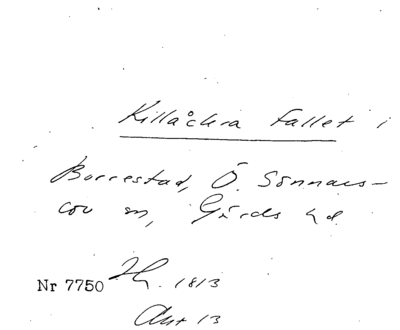 Killåckra fallet i
Borrestad, Ö. Sönnars-
löv sn, Gärds hd.
Nr 7750
1813
Akt 13